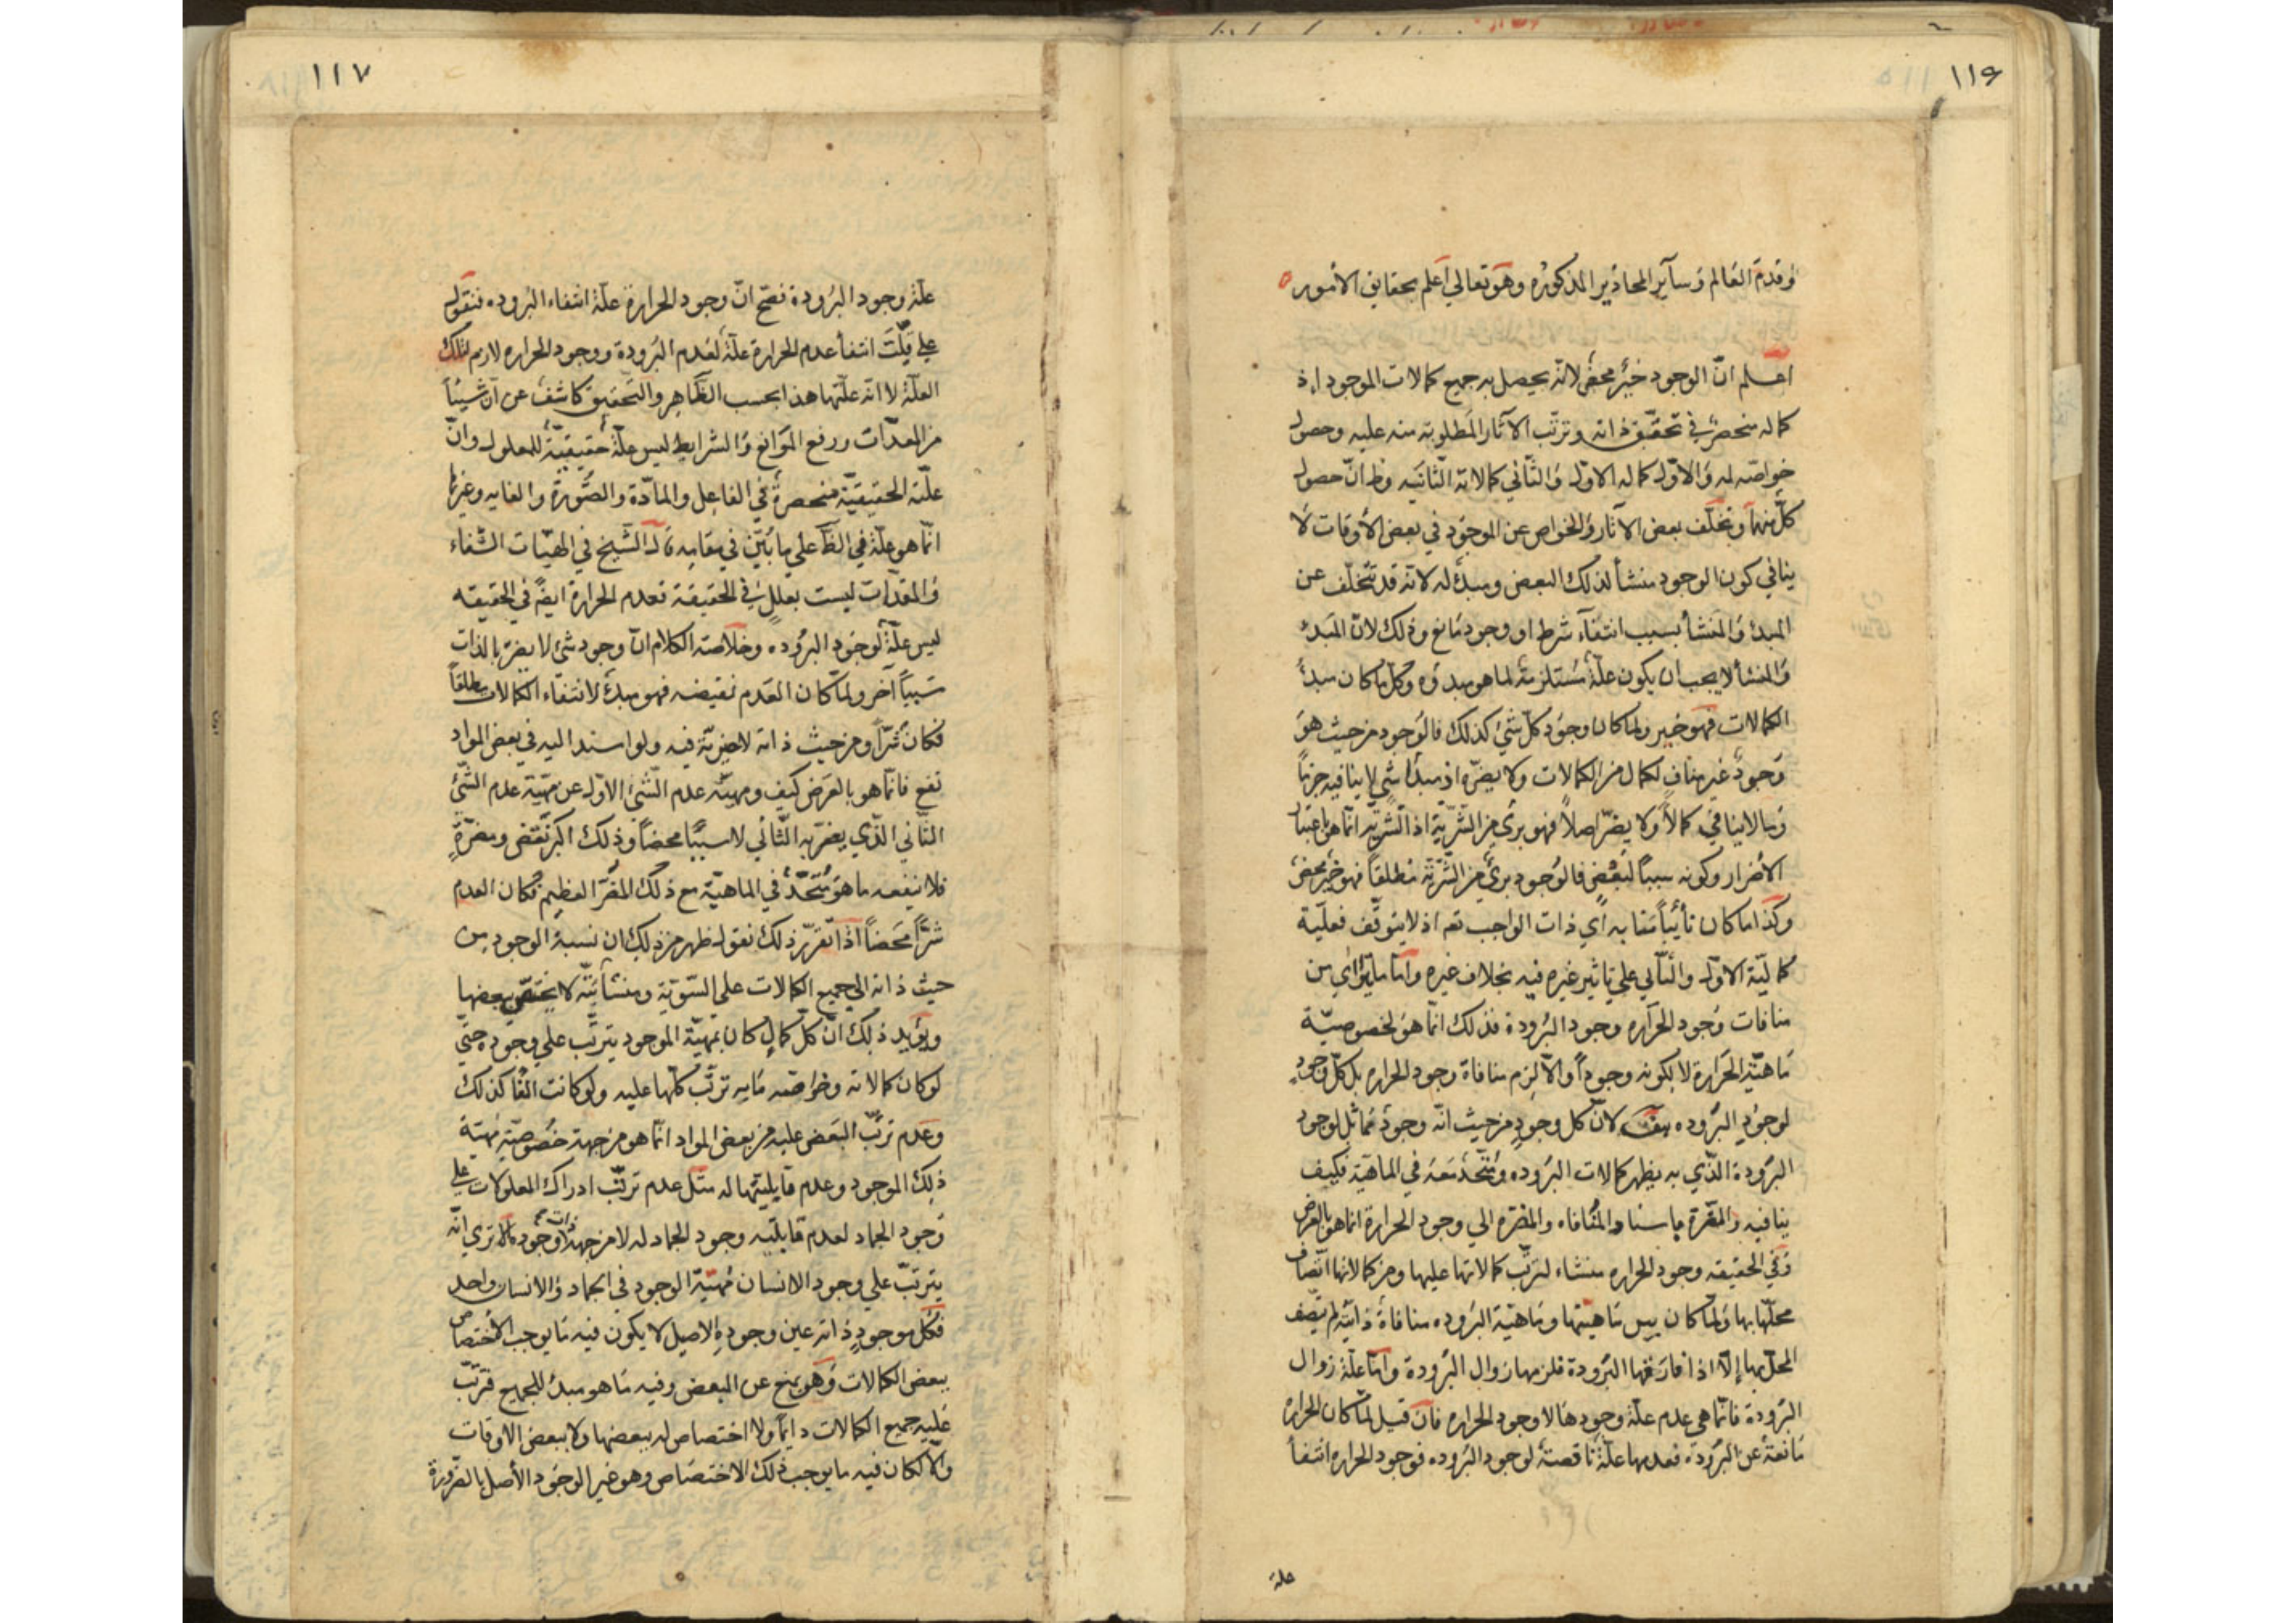 ١١٦
وقدم العالم وساير المحاذير المذكوره وهو تعالي اعلم بحقايق الامور
اعلم انّ الوجود خير محض لانّه يحصل به جميع كمالات الموجود اذ
كماله منحصر في تحقّق ذاته وترتّب الآثار المطلوبة منه عليه وحصول
خواصّه له والاوّل كماله الاوّل والثّاني كمالاته الثّانيه وظ انّ حصول
كلّ منهما وتخلّف بعض الآثار والخواص عن الموجود في بعض الأوقات لا
ينافي كون الوجود منشأ لذلك البعض ومبدئ له لانّه قد يتخلّف عن
المبدئ والمنشأ بسبب انتفآء شرط او وجود مانع وذلك لانّ المبدئ
والمنشأ لا يجب ان يكون علّة مستلزمة لما هو مبدؤه وكلّ ما كان مبدئ
الكمالات فهو خير ولما كان وجود كلّ شئ كذلك فالوجود من حيث هو
وجود غير مناف لكمال من الكمالات ولا يضرّه اذ مبدئ شئ لا ينافيه جزماً
وما لا ينافي كمالاً ولا يضرّ اصلاً فهو برئ من الشّريّة اذ الشّريّة انّما هي باعتبار
الأضرار وكونه سبباً لنقص فالوجود برئ من الشّريّة مطلقاً فهو خير محض
وكذا ما كان نائباً منابه اي ذات الواجب تعه اذ لا يتوقّف فعليّة
كماليّة الاوّل والثّاني علي تاثير غيره فيه بخلاف غيره وامّا ما يترااي من
منافات وجود الحراره وجود البرودة فذلك انّما هو لخصوصيّة
ماهيّة الحرارة لا بكونه وجوداً والّا لزم منافاة وجود الحراره بل كلّ وجود
لوجود البروده لانّ كل وجود من حيث انّه وجود مماثل لوجود
البرودة الّذي به يظهر كمالات البروده ومتّحد معه في الماهيّة فكيف
ينافيه والمضرّة واسناد المنافاه والمضره الي وجود الحرارة انما هو بالعرض
وفي الحقيقه وجود الحراره منشاء لترتّب كمالاتها عليها ومن كمالاتها اتّصاف
محلّها بها ولمّا كان بين ماهيّتها وماهيّة البروده منافاة ذاتيّة لم يتّصف
المحلّ بها إلّا اذا فارقها البرودة فلزمها زوال البرودة وامّا علّة زوال
البرودة فانّما هي عدم علّة وجودها لا وجود الحراره فان قيل لمّا كان الحرارة
مانعة عن البروده فعدمها علّة ناقصة لوجود البروده فوجود الحراره انتفأ
علة
١١٧
علّة وجود البرودة فصحّ انّ وجود الحرارة علّة انتفاء البروده فنقول
انتفأ عدم الحرارة علّة لعدم البرودة ووجود الحراره لازم لتلك
العلّة لا انّه علّتها هذا بحسب الظّاهر والتّحقيق كاشف عن انّ شيئاً
من المعدّات ورفع الموانع والشرايط ليس علّة حقيقيّة للمعلول وانّ
علّته الحقيقيّة منحصرة في الفاعل والمادّة والصّورة والغايه وغيرها
انّما هو علّة في الظّ علي ما بيّن في مقامه قال الشّيخ في الهيّات الشّفاء
والمعدّات ليست بعلل في الحقيقة فعدم الحرارة ايضً في الحقيقه
ليس علّة لوجود البروده وخلاصة الكلام انّ وجود شئ لا يضرّ بالذات
شيئاً آخر ولمّا كان العدم نقيضه فهو مبدئ لانتفاء الكمالات مطلقاً
فكان شرّاً ومن حيث ذاته لا خيريّة فيه ولو اسند اليه في بعض المواد
نفع فانّما هو بالعرض كيف ومهيّة عدم الشّئ الاوّل عن مهيّة عدم الشّئ
الثّاني الّذي يضرّ به الثّاني لا سبباً محضاً وذلك اكبر نقص ومضرّة
فلا ينفعه ما هو متّحد في الماهيّة مع ذلك المضرّ العظيم فكان العدم
شرّاً محضاً اذا تقرّر ذلك نقول ظهر من ذلك ان نسبة الوجود من
حيث ذاته الي جميع الكمالات علي السّويّة ومنشائيّته لا يختصّ ببعضها
ويؤيد ذلك انّ كلّ كمال كان بمهيّة الموجود يترتّب علي وجوده حتي
لو كان كمالاته وخواصّه مايه ترتّب كلّها عليه ولو كانت الفاً كذلك
وعدم ترتّب البعض عليه من بعض المواد انّما هو من جهة خصوصيّة مهيّة
ذلك الموجود وعدم قابليتها له مثل عدم ترتّب ادراك المعلولات علي
وجود الجماد لعدم قابليّه وجود الجماد له لا من جهة ذات وجود الا تري انّه
يترتّب علي وجود الانسان فمهيّة الوجود في الجماد والانسان واحد
فكل موجود ذاته عين وجوده الاصيل لا يكون فيه ما يوجب الاختصاص
ببعض الكمالات وهو يمنع عن البعض وفيه ما هو مبدئ للجميع فترتّب
عليه جميع الكمالات دايماً ولا اختصاص له ببعضها ولا ببعض الاوقات
والّا لكان فيه ما يوجب ذلك الاختصاص وهو غير الوجود الأصل بالضّرورة